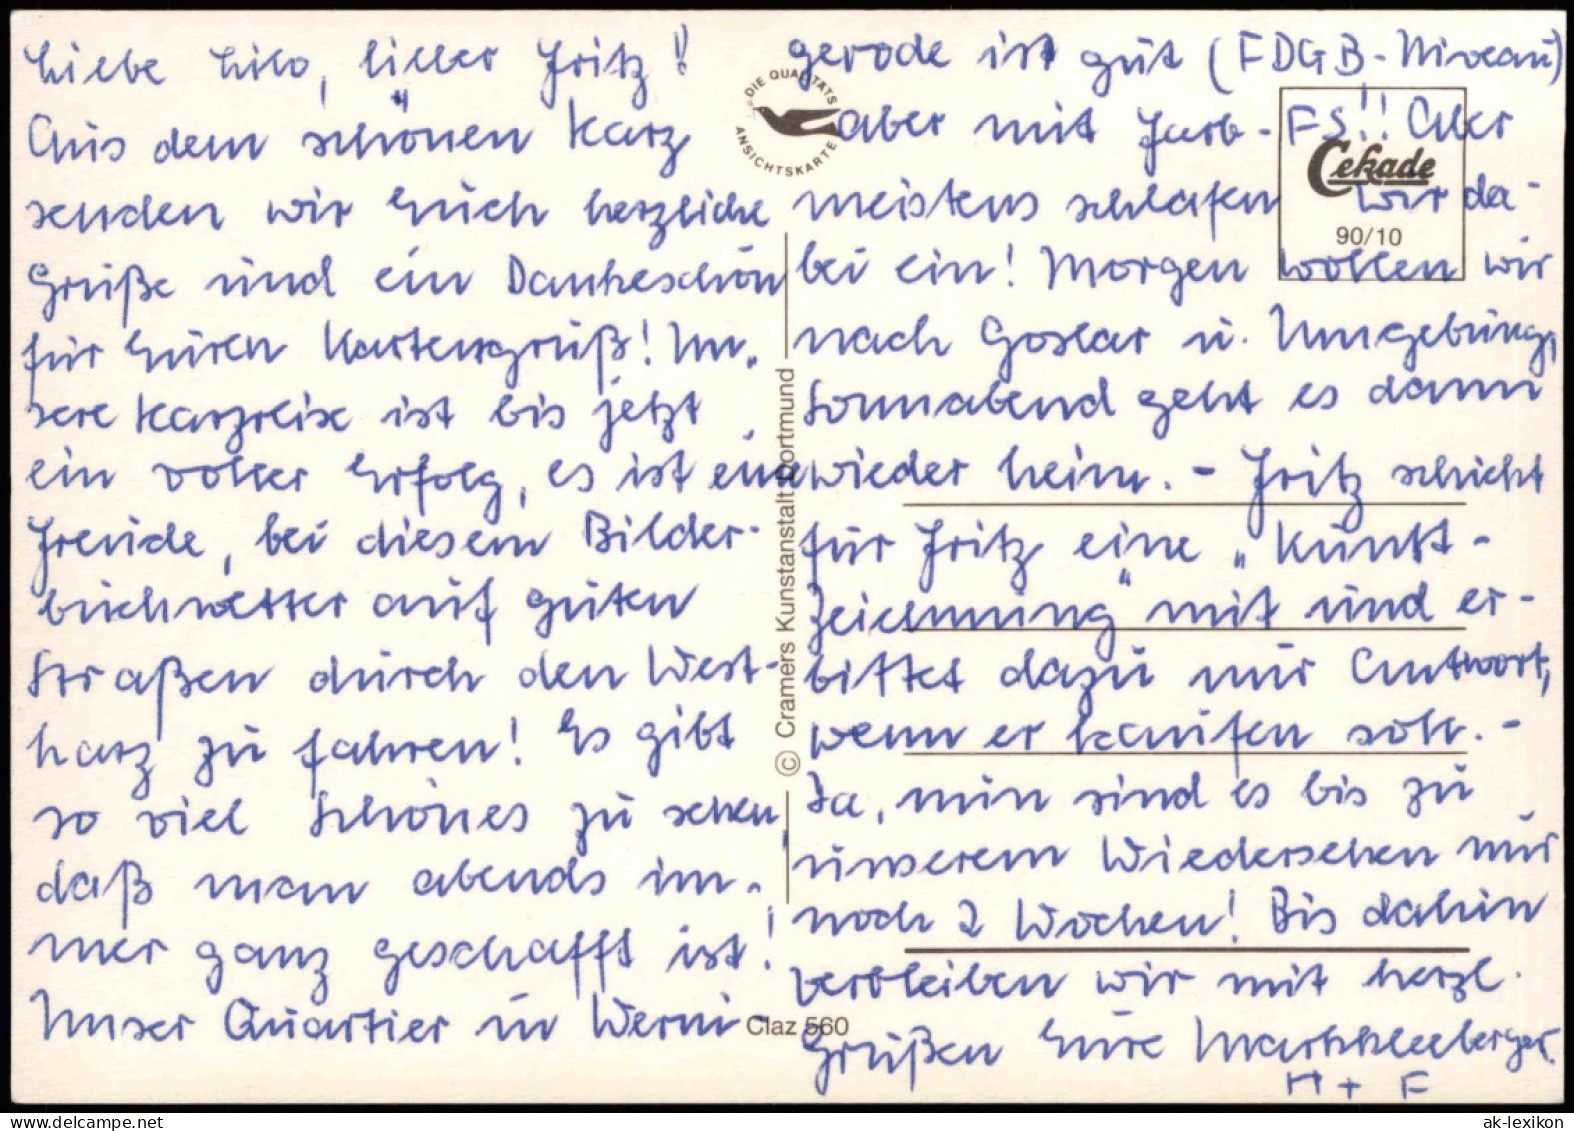 Liebe Lilo, lieber Fritz!
Aus dem schönen Harz
senden wir Euch herzliche
Grüße und ein Dankeschön
für Euren Kartengruß! Un-
sere Harzreise ist bis jetzt
ein voller Erfolg, es ist eine
Freude, bei diesem Bilder-
buchwetter auf guten
Straßen durch den West-
harz zu fahren! Es gibt
so viel Schönes zu sehen,
daß man abends im-
mer ganz geschafft ist!
Unser Quartier in Werni-
gerode ist gut (FDGB-Niveau)
aber mit Farb-FS!! Aber
meistens schlafen wir da-
bei ein! Morgen wollen wir
nach Goslar u. Umgebung,
Sonnabend geht es dann
wieder heim. - Fritz schickt
für Fritz eine „Kunst-
Zeichnung“ mit und er-
bittet dazu nur Antwort,
wenn er kaufen soll. -
Ja, nun sind es bis zu
unserem Wiedersehen nur
noch 2 Wochen! Bis dahin
verbleiben wir mit herzl.
Grüßen Eure Markkleeberger.
H + F
DIE QUALITÄTS
ANSICHTSKARTE
Cekade
90/10
© Cramers Kunstanstalt Dortmund
Claz 560
ak-lexikon